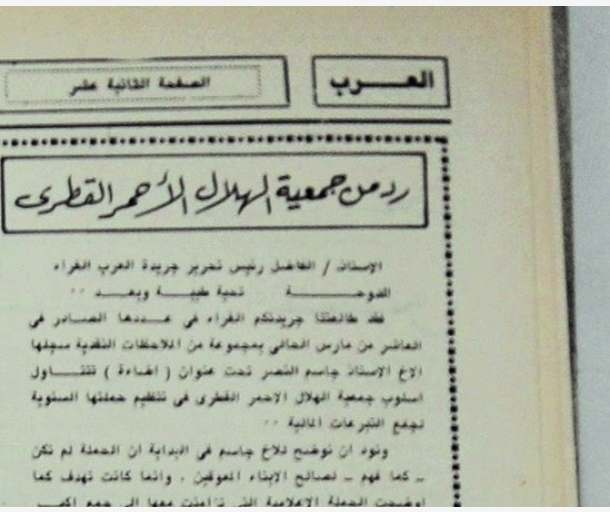 العـــرب
الصفحة الثانية عشر
رد من جمعية الهلال الأحمر القطرى
الاستاذ / الفاضل رئيس تحرير جريدة العرب الغراء
الدوحـــــة تحية طيبـــة وبعـــد ٠٠
فقد طالعتنا جريدتكم الغراء فى عـــددها الصـــادر فى
العاشر من مارس الحالى بمجموعة من الملاحظات النقدية سجلها
الاخ الاستاذ جاسم النصر تحت عنوان ( اضاءة ) تتنـــاول
اسلوب جمعية الهلال الاحمر القطرى فى تنظيم حملتها السنوية
لجمع التبرعات المالية ٠٠
ونود ان نوضح للاخ جاسم فى البداية ان الحملة لم تكن
ـ كما فهم ـ لصالح الابناء المعوقين ، وانما كانت تهدف كما
اوضحت الحملة الاعلامية التى تزامنت معها الى جمع اكبـــر